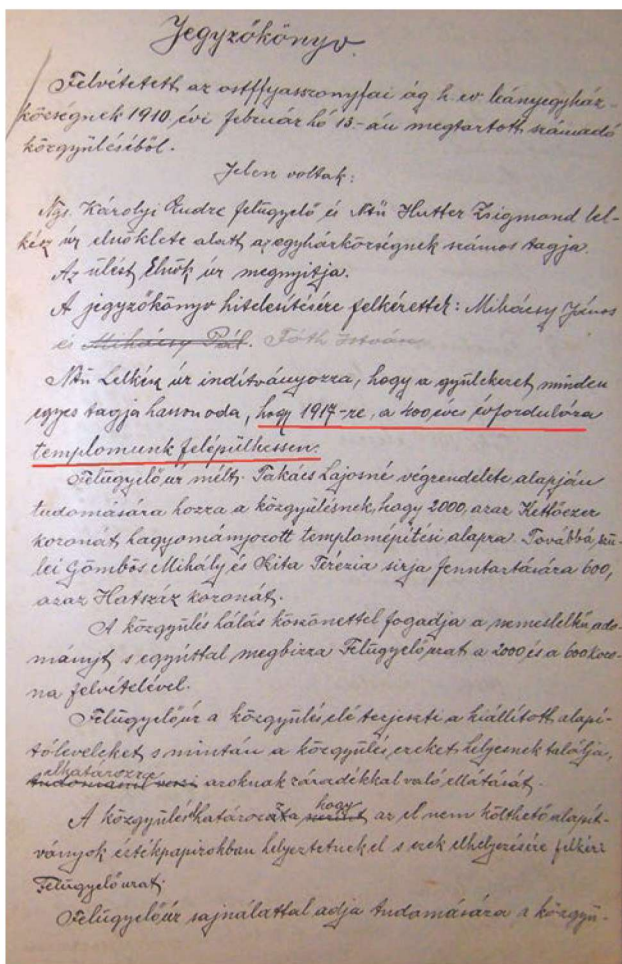 Jegyzőkönyv.
Felvétetett az ostffyasszonyfai ág. h. ev. leányegyház-
községnek 1910. évi február hó 13.-án megtartott számadó
közgyűléséből.
Jelen voltak:
Ngs. Károlyi Endre felügyelő és Ntü Hutter Zsigmond lel-
kész úr elnöklete alatt az egyházközségnek számos tagja.
Az ülést Elnök úr megnyitja.
A jegyzőkönyv hitelesítésére felkérettek: Mihácsy János
és Mihácsy Pál. Tóth István
Ntü Lelkész úr indítványozza, hogy a gyülekezet minden
egyes tagja hasson oda, hogy 1917-re, a 400 éves évfordulóra
templomunk felépülhessen.
Felügyelő úr mélt. Takács Lajosné végrendelete alapján
tudomására hozza a közgyűlésnek, hogy 2000, azaz Kettőezer
koronát hagyományozott templomépítési alapra. Továbbá, szü-
lei Gömbös Mihály és Kita Terézia sírja fenntartására 600,
azaz Hatszáz koronát.
A közgyűlés hálás köszönettel fogadja a nemeslelkű ado-
mányt s egyúttal megbízza Felügyelő urat a 2000 és a 600 koro-
na felvételével.
Felügyelő úr a közgyűlés elé terjeszti a kiállított alapí-
tóleveleket s miután a közgyűlés ezeket helyesnek találja,
elhatározza
tudomásul veszi azoknak záradékkal való ellátását.
hogy
A közgyűlés határozza az el nem költhető alapít-
ványok értékpapírokban helyeztetnek el s ezek elhelyezésére felkéri
Felügyelő urat.
Felügyelő úr sajnálattal adja tudomására a közgyű-